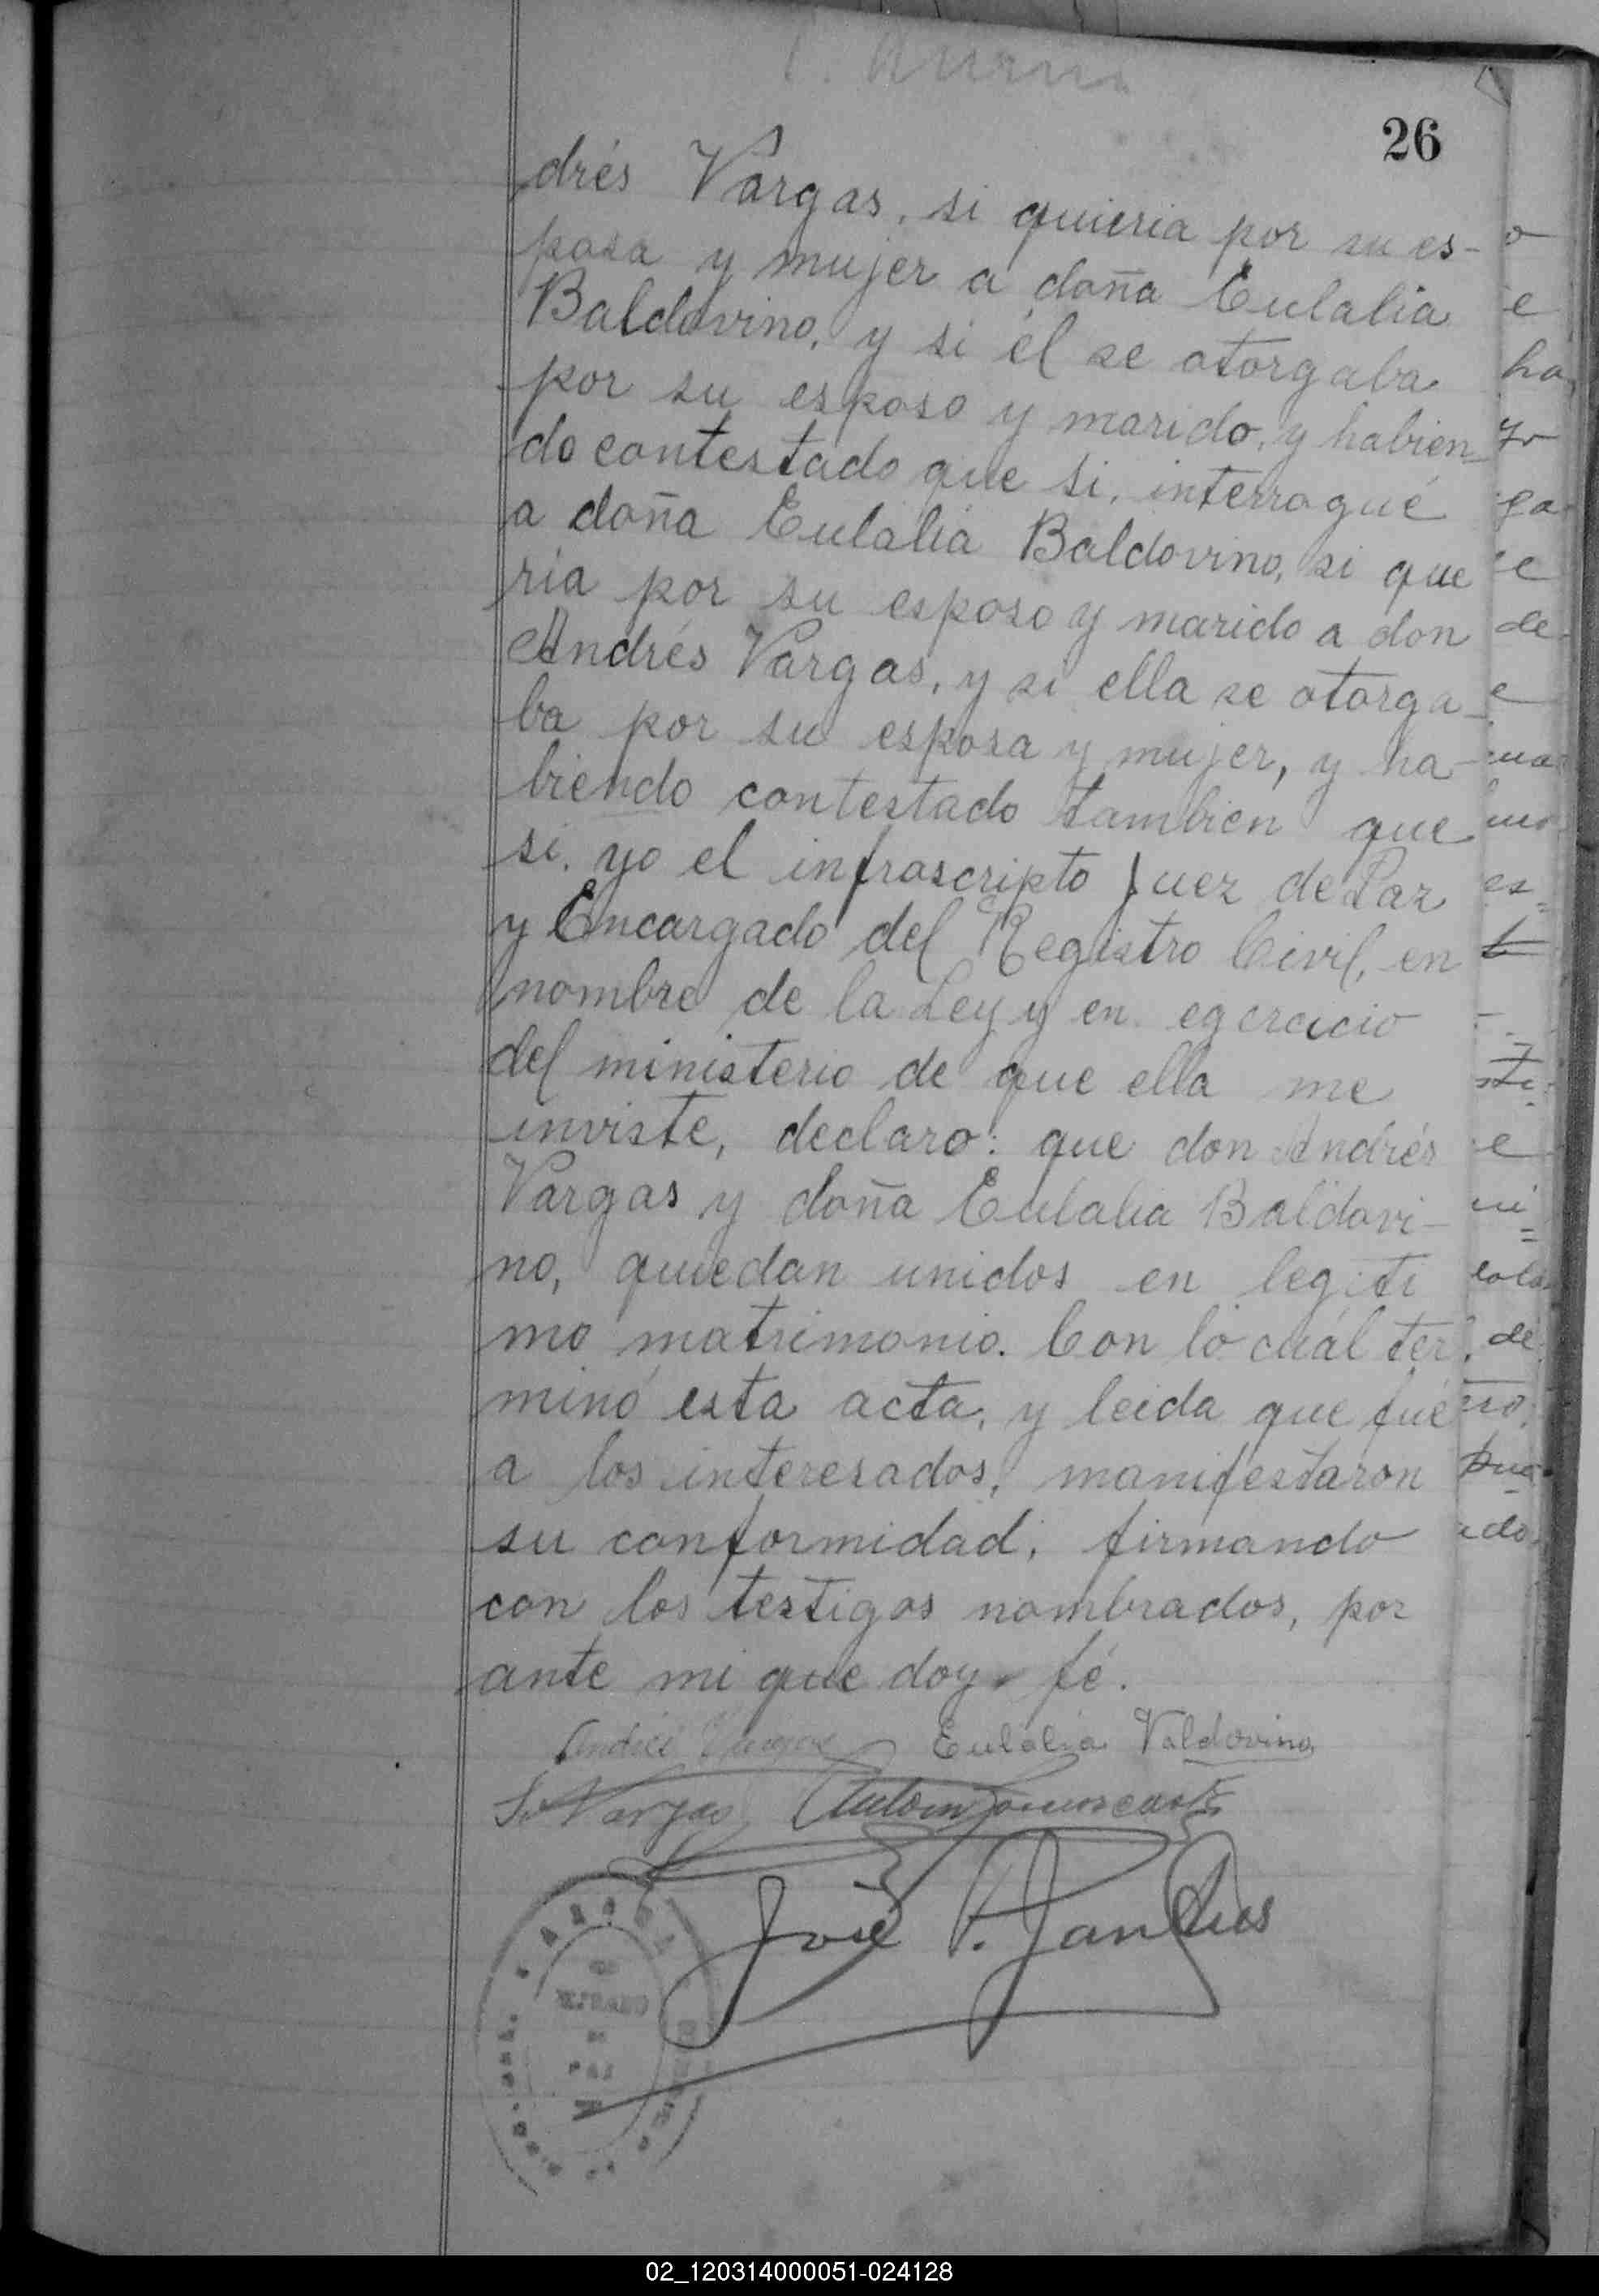 26
drés Vargas, si quieria por su es-
posa y mujer a doña Eulalia
Baldovino, y si él se otorgaba
por su esposo y marido, y habien-
do contestado que si, interrogué
a doña Eulalia Baldovino, si que
ria por su esposo y marido a don
Andrés Vargas, y si ella se otorga-
ba por su esposa y mujer, y ha-
biendo contestado también que
si, yo el infrascripto Juez de Paz
y Encargado del Registro Civil, en
nombre de la Ley y en egercicio
del ministerio de que ella me
inviste, declaro: que don Andrés
Vargas y doña Eulalia Baldovi-
no, quedan unidos en legiti
mo matrimonio. Con lo cuál ter
minó esta acta, y leida que fué
a los interesados, manifestaron
su conformidad, firmando
con los testigos nombrados, por
ante mi que doy fé.
Andrés Vargas Eulalia Valdovino
S. Vargas
José
JUZGADO
DE
PAZ
02_120314000051-024128